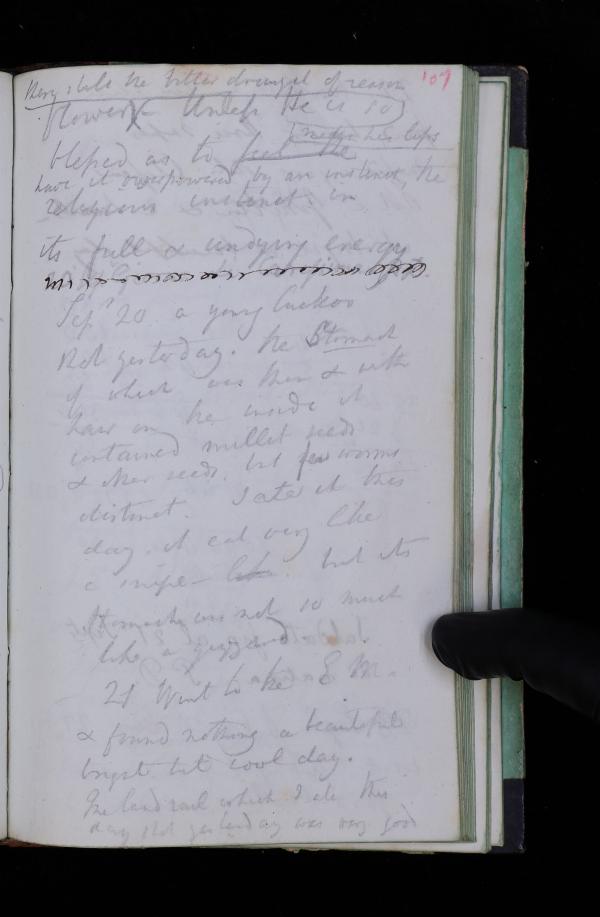 they stole the bitter draught of reason 109
flower Unless He is so
near his lips
blessed as to feel the
have it overpowered by an instinct, the
religious instinct in
its full & undying energy
Sepr 20 a young Cuckoo
shot yesterday. the Stomach
of which was thin & with
hair on the inside it
contained millet seeds
& other seeds. but few worms
distinct. I ate it this
day. it eat very like
a snipe - but its
stomach was not so much
like a gizzard
21 Went to the E M.
& found nothing a beautiful
bright but cool day.
The land rail which I ate this
day shot yesterday was very good